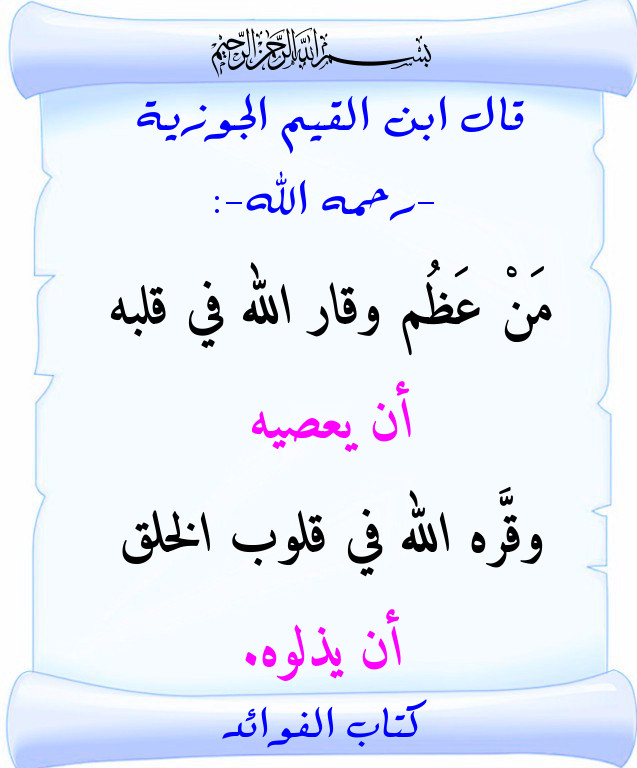 بسم الله الرحمن الرحيم
قال ابن القيم الجوزية
-رحمه الله-:
مَنْ عَظُم وقار الله في قلبه
أن يعصيه
وقَّره الله في قلوب الخلق
أن يذلوه.
كتاب الفوائد